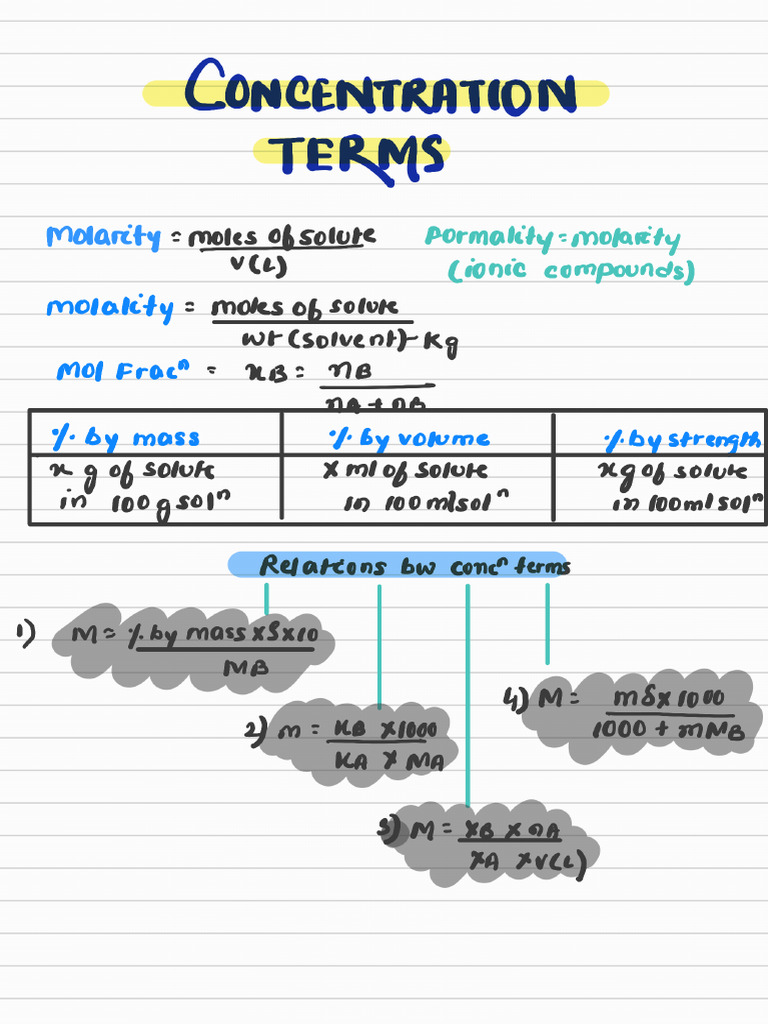 CONCENTRATION
TERMS
Molarity = moles of solute
V(L)
Formality = molarity
(ionic compounds)
molality = moles of solute
wt (solvent) - Kg
Mol Fracⁿ = xB = nB
nA + nB
% by mass
% by volume
% by strength
x g of solute
in 100 g solⁿ
x ml of solute
in 100 ml solⁿ
x g of solute
in 100 ml solⁿ
Relations bw concⁿ terms
1) M = % by mass x S x 10
MB
2) m = xB x 1000
xA x MA
3) M = xB x nA
xA x V(L)
4) M = mS x 1000
1000 + mMB